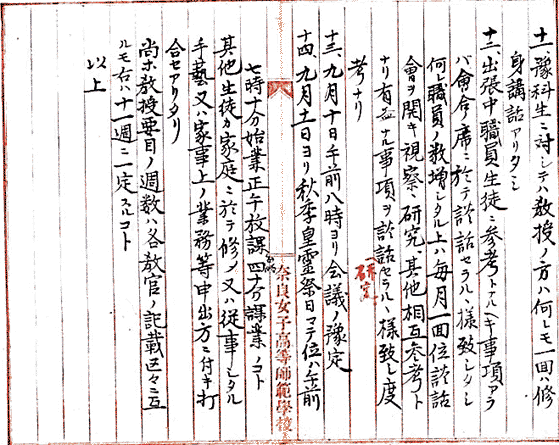 十一、豫科生ニ対シテハ教授ノ方ハ何レモ一回ハ修
身講話アリタシ
十二、出張中職員生徒ニ参考トナルヘキ事項アラ
バ會合ノ席ニ於テ談話セラルヽ様致シタシ
何レ職員ノ数増シタル上ハ毎月一回位談話
會ヲ開キ視察、研究、其他相互参考ト
ナリ有益ナル事項ヲ談話セラルヽ様致シ度
考ナリ
(研究)
十三、九月十日午前八時ヨリ会議ノ豫定
十四、九月十一日ヨリ秋季皇霊祭日マテ位ハ午前
七時十分始業正午放課四十分課業ノコト
奈良女子高等師範學校
其他生徒カ家庭ニ於テ修メ又ハ従事シタル
手藝又ハ家事上ノ業務等申出方ニ付キ打
合セアリタリ
尚ホ教授要目ノ週数ハ各教官ノ記載区々ニ亘
ルモ右ハ十一週ニ一定スルコト
以上